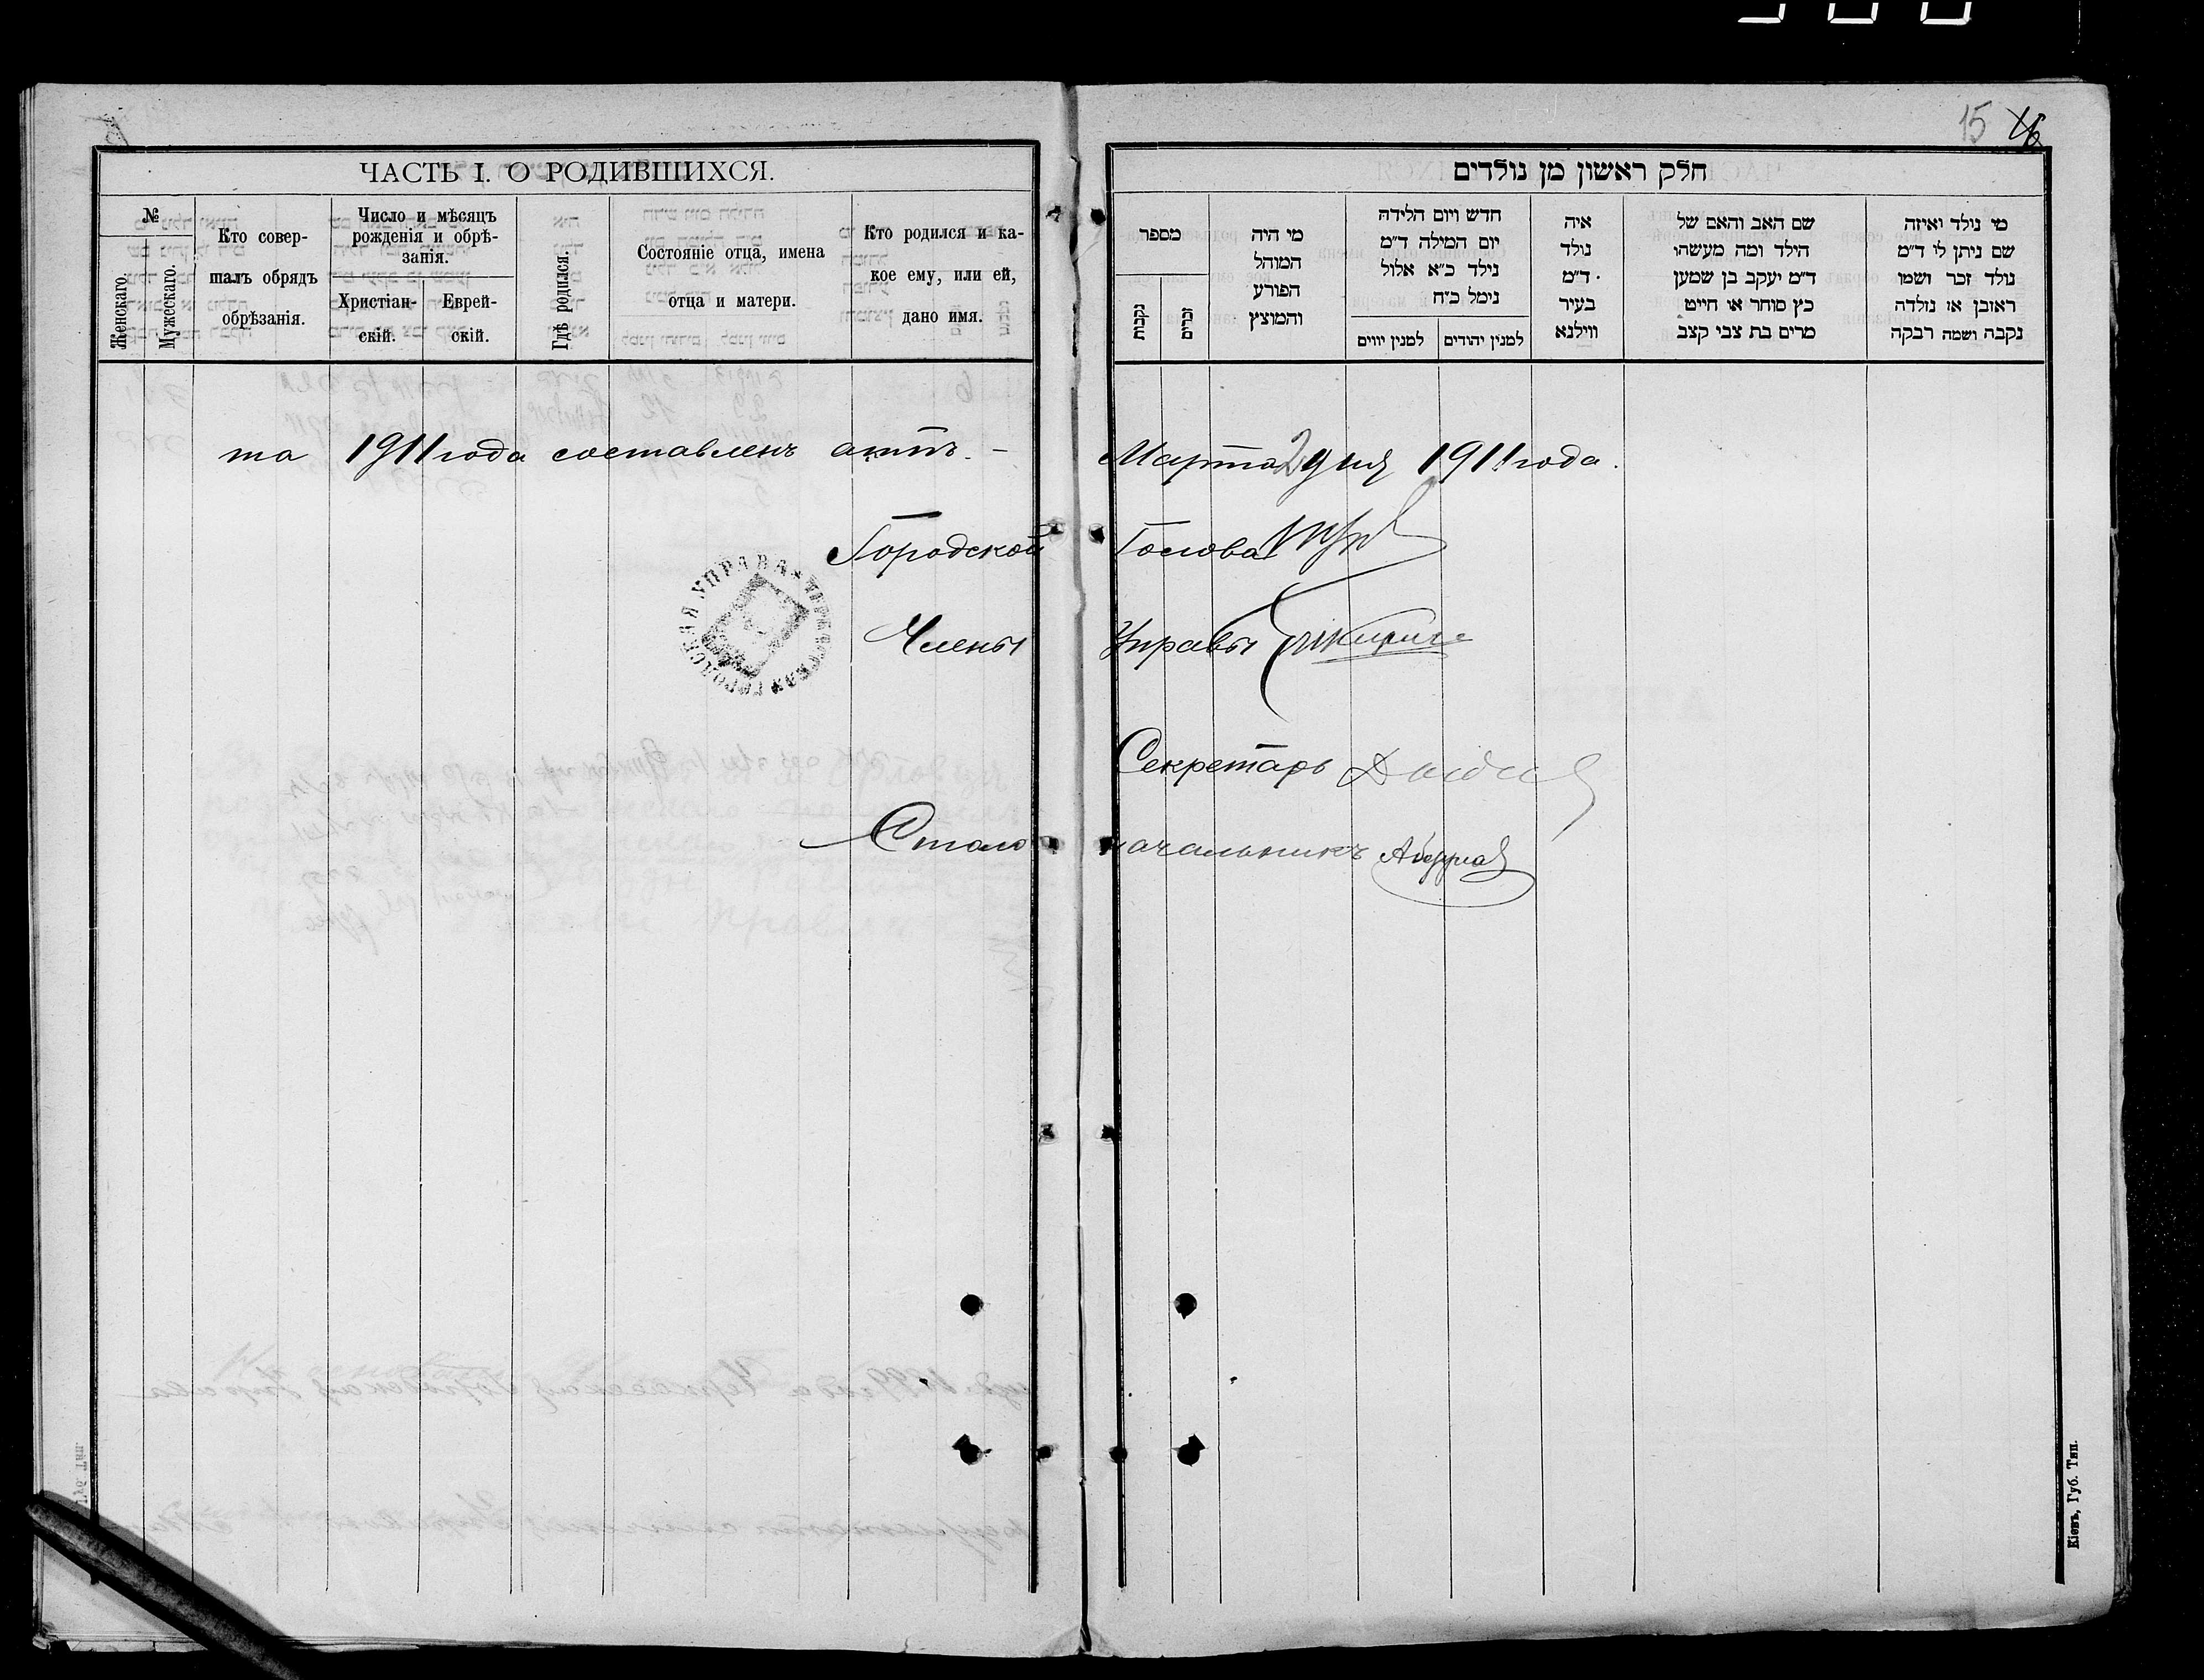 15
ЧАСТЬ I. О РОДИВШИХСЯ.
№
Женскаго.
Мужескаго.
Кто совер-
шалъ обрядъ
обрѣзанія.
Число и мѣсяцъ
рожденія и обрѣ-
занія.
Христіан-
скій.
Еврей-
скій.
Гдѣ родился.
Состояніе отца, имена
отца и матери.
Кто родился и ка-
кое ему, или ей,
дано имя.
та 1911 года составленъ актъ. -
Городской
Члены
Столо
ГОРОДСКАЯ УПРАВА
חלק ראשון מן נולדים
מספר
נקבות
זכרים
מי היה
המוהל
הפורע
והמוצץ
חדש ויום הלידה
יום המילה ד״מ
נילד כ״א אלול
נימל כ״ח
למנין יווים
למנין יהודים
איה
נולד
ד״מ
בעיר
ווילנא
שם האב והאם של
הילד ומה מעשהו
ד״מ יעקב בן שמען
כץ סוחר או חייט
מרים בת צבי קצב
מי נולד ואיזה
שם ניתן לו ד״מ
נולד זכר ושמו
ראובן או נולדה
נקבה ושמה רבקה
Марта 2 дня 1911 года.
Голова
Управы
Секретарь
начальникъ
Кіевъ, Губ. Тип.